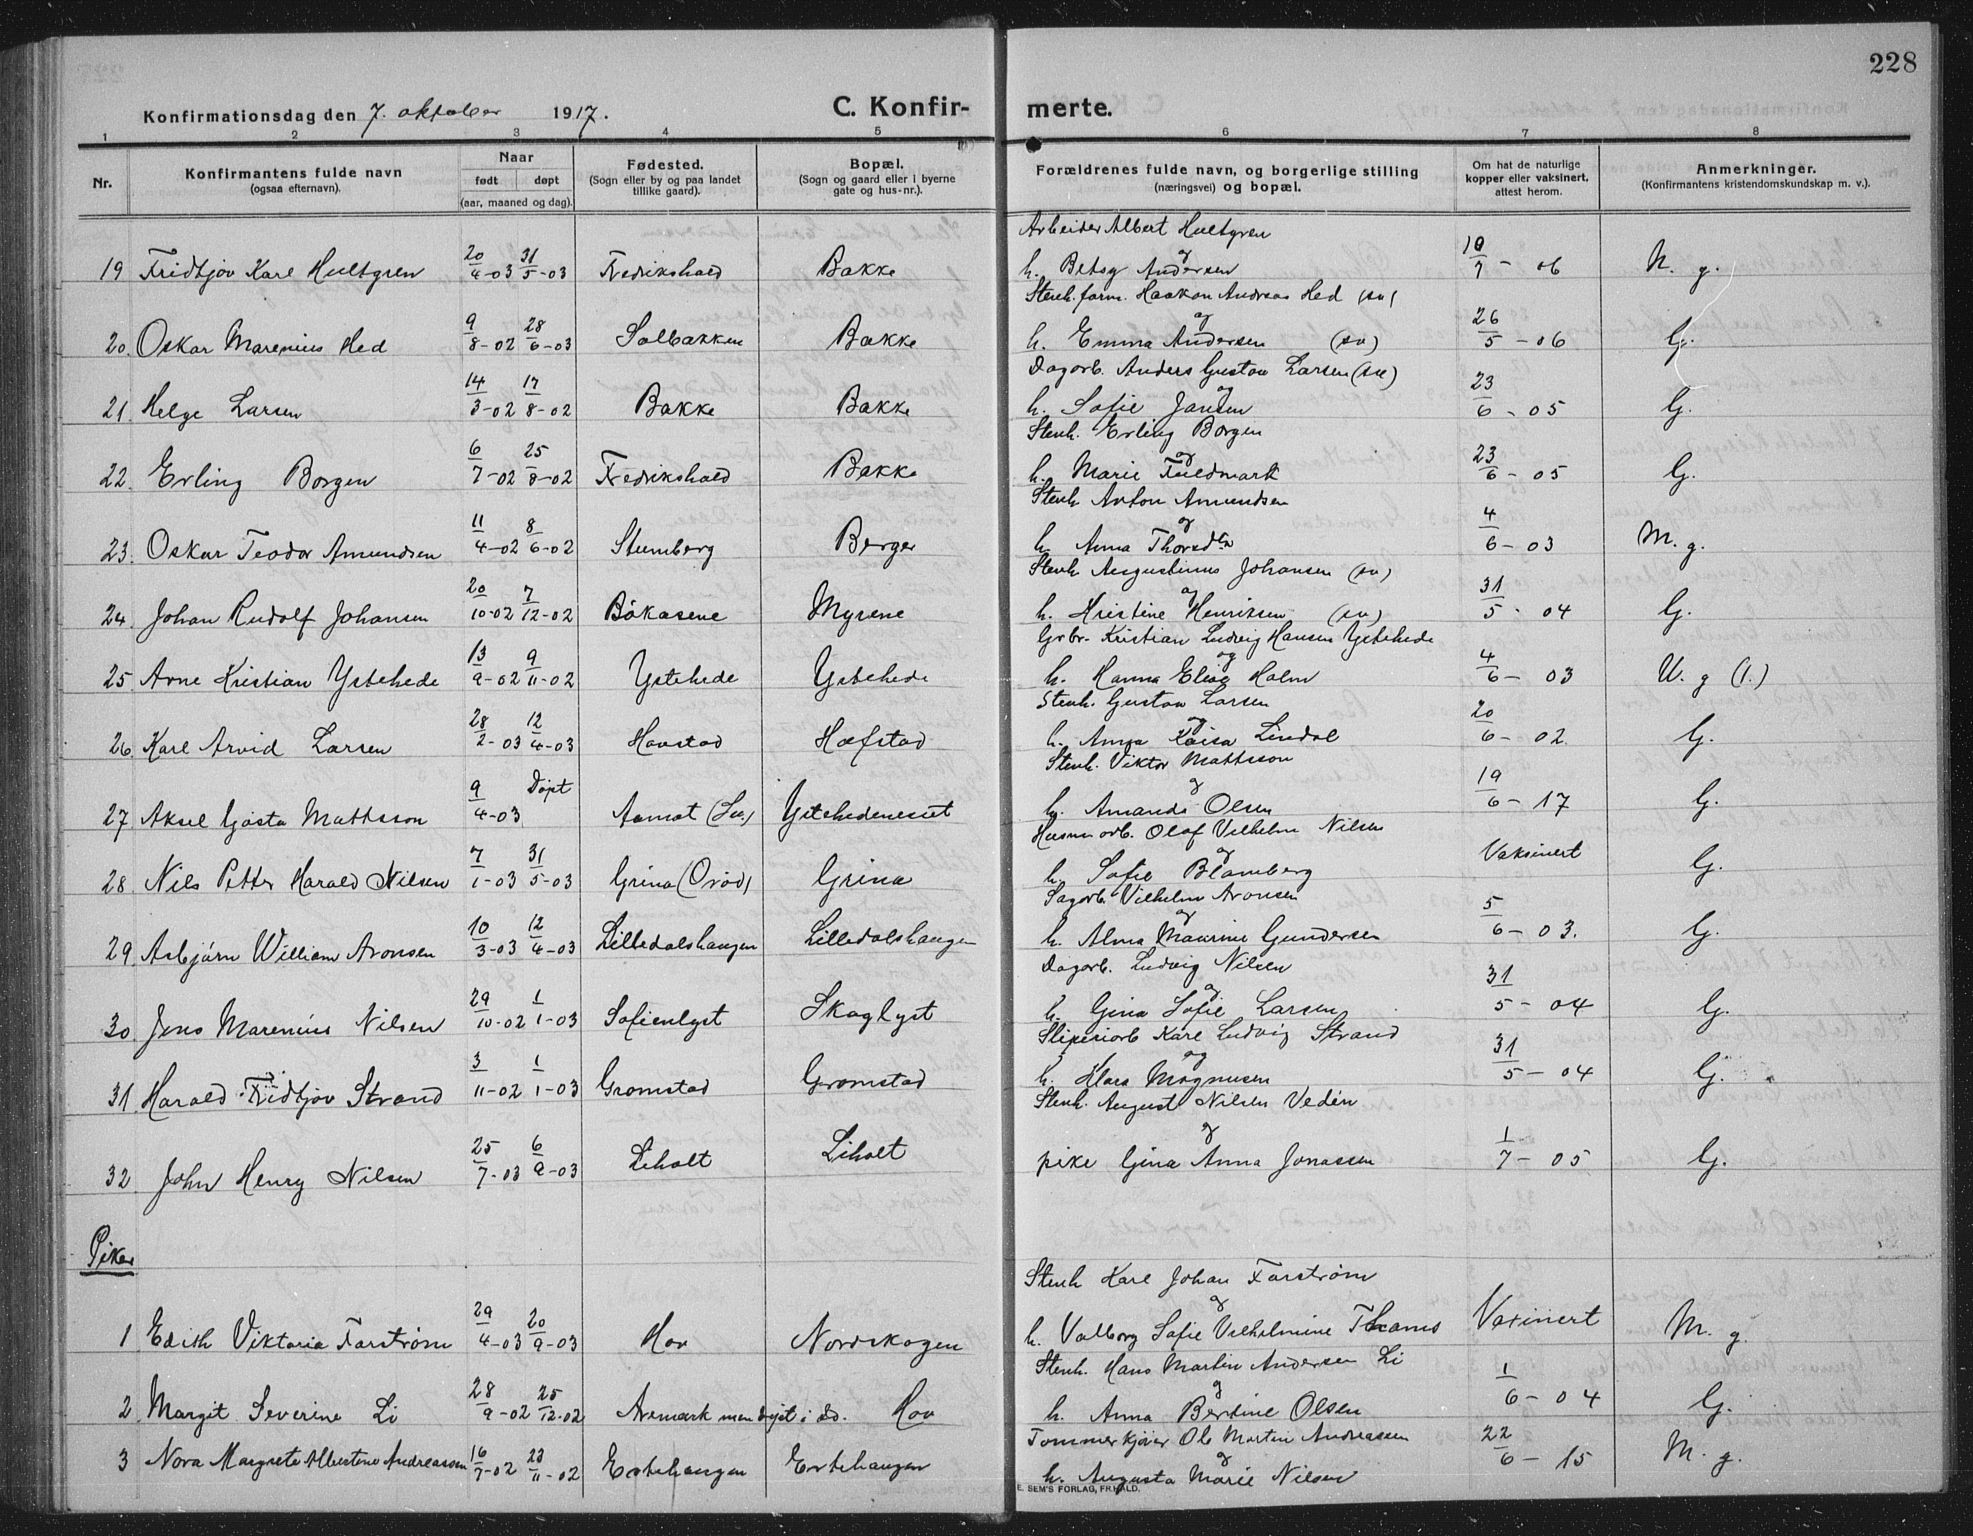 228
Konfirmationsdag den 7. oktober 1917. C. Konfirmerte.
1 2 3 4 5 6 7 8
Nr. Konfirmantens fulde navn (ogsaa efternavn). Naar født døpt (aar, maaned og dag). Fødested. (Sogn eller by og paa landet tillike gaard). Bopæl. (Sogn og gaard eller i byerne gate og hus-nr.). Forældrenes fulde navn, og borgerlige stilling (næringsvei) og bopæl. Om hat de naturlige kopper eller vaksinert, attest herom. Anmerkninger. (Konfirmantens kristendomskundskap m. v.).
Arbeider Albert Hultgren
19 Fridtjov Karl Hultgren 20/4-03 31/5-03 Fredrikshald Bakke og h. Betsy Andersen 10/7-06 N. g.
Stenh. form. Haakon Andreas Hed (sv)
20. Oskar Marenius Hed 9/8-02 28/6-03 Solbakken Bakke og h. Emma Andersen (sv) 26/5-06 G.
Dagarb. Anders Gustav Larsen (sv)
21. Helge Larsen 14/3-02 17/8-02 Bakke Bakke og h. Sofie Jansen 23/6-05 G.
Stenh. Erling Borgen
22. Erling Borgen 6/7-02 25/8-02 Fredrikshald Bakke og h. Marie Fuldmark 23/6-05 G.
Stenh Anton Amundsen
23. Oskar Teodor Amundsen 11/4-02 8/6-02 Stumberg Berger og h. Anna Thorsdtr 4/6-03 M. g.
Stenh Augustinus Johansen (sv)
24. Johan Rudolf Johansen 20/10-02 7/12-02 Bökasene Myrene og h. Kristine Henriksen (sv) 31/5-04 G.
Grbr. Kristian Ludvig Hansen Ystehede
25 Arne Kristian Ystehede 13/9-02 9/11-02 Ystehede Ystehede og h. Hanna Elise Holm 4/6-03 U. g (1.)
Stenh. Gustav Larsen
26 Karl Arvid Larsen 28/2-03 12/4-03 Hovstad Hafstad og h. Anna Kaisa Lindal 20/6-02 G.
Stenh. Viktor Mattsson
27 Aksel Gøsta Mattsson 9/4-03 Döpt Aamot (Sv.) Ystehedeneset og h. Amanda Olsen 19/6-17 G.
Husm arb. Olaf Vilhelm Nilsen
28 Nils Petter Harald Nilsen 7/1-03 31/5-03 Grina (Oröd) Grina og h. Sofie Blomberg Vaksinert G.
Sagarb. Vilhelm Aronsen
29. Asbjørn William Aronsen 10/3-03 12/4-03 Lilledalshaugen Lilledalshaugen og h. Alma Maurine Gundersen 5/6-03. G.
Dagarb. Ludvig Nilsen
30 Jens Marenius Nilsen 29/10-02 1/1-03 Sofienlyst Skoglyst og h. Gina Sofie Larsen 31/5-04 G.
Sliperiarb Karl Ludvig Strand
31 Harald Fridtjov Strand 3/11-02 1/1-03 Gromstad Gromstad og h. Klara Magnusen 31/5-04 G.
Stenh. August Nilsen Vedén
32 John Henry Nilsen 25/7-03 6/9-03 Liholt Liholt og pike Gina Anna Jonassen 1/7-05 G.
Piker
Stenh Karl Johan Forström
1 Edith Viktoria Forström 29/4-03 20/9-03 Hov Nordskogen og h. Valborg Sofie Vilhelmine Thams Vaxinert M. g.
Stenh. Hans Martin Andersen Li
2 Margit Severine Li 28/9-02 25/12-02 Aremark men döpt i Id. Hov og h. Anna Bertine Olsen 1/6-04 G.
Tømmerkjører Ole Martin Andreassen
3 Nora Margrete Albertine Andreassen 16/7-02 23/11-02 Ertehaugen Ertehaugen og h. Augusta Marie Nilsen 22/6-15 M. g.
E. SEM'S FORLAG, FR.HALD.